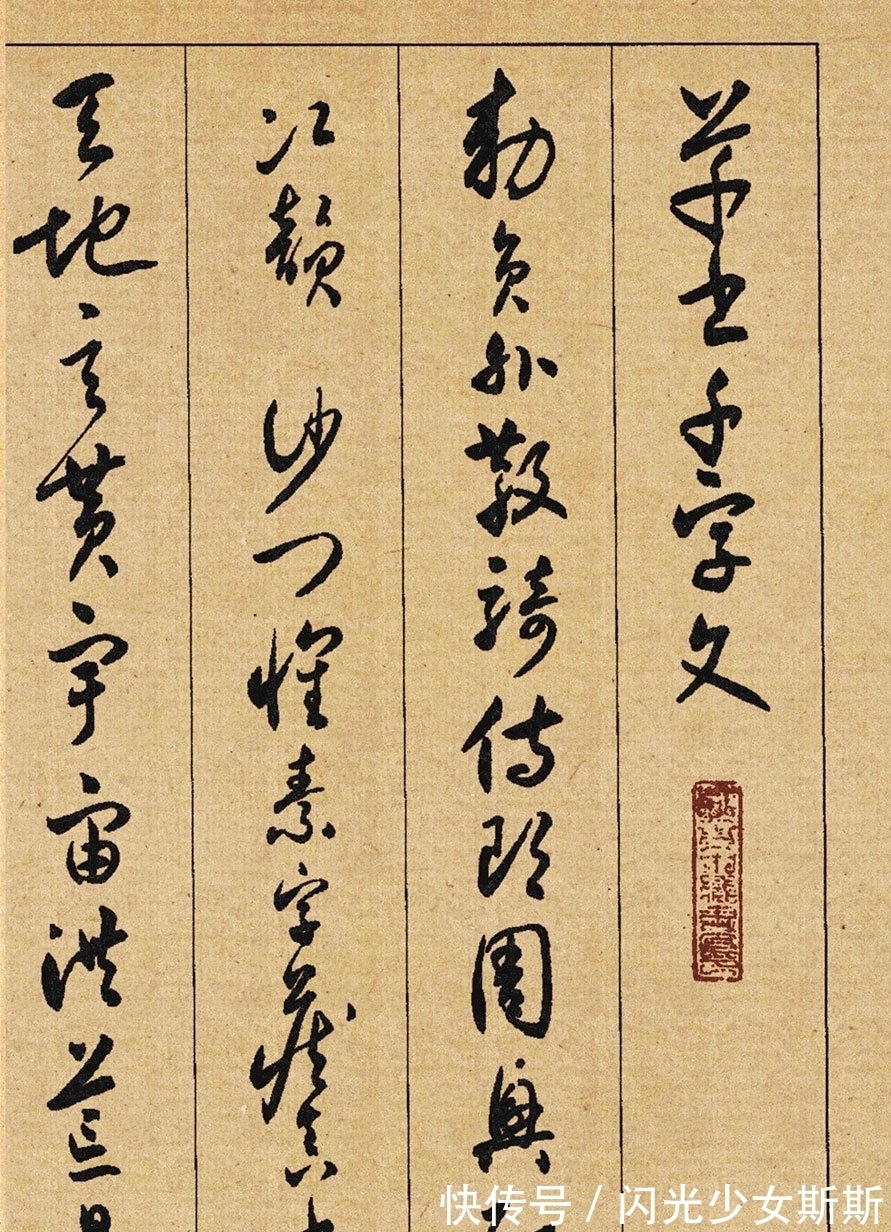 草書千字文
勅員外散騎侍郎周興
次韻 沙門懷素字藏真
天地玄黃宇宙洪荒日
快传号 / 闪光少女斯斯